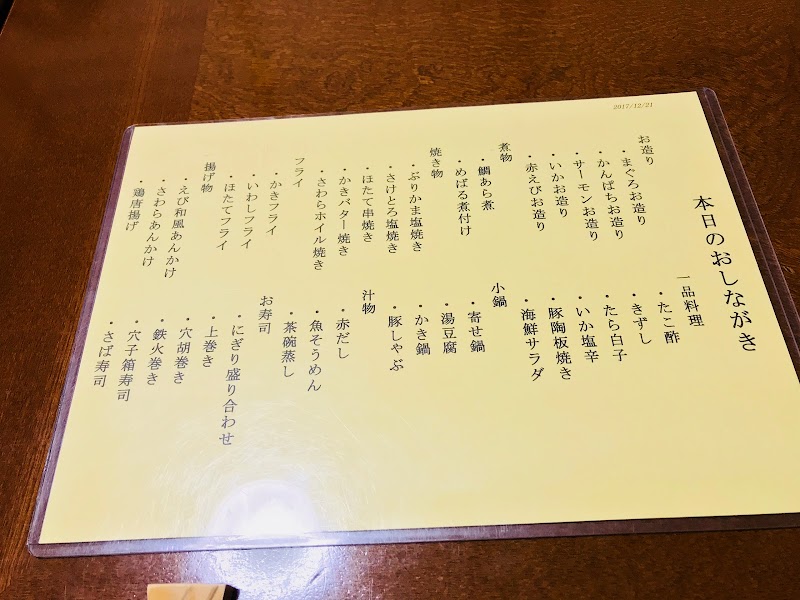 2017/12/21
本日のおしながき
お造り
・まぐろお造り
・かんぱちお造り
・サーモンお造り
・いかお造り
・赤えびお造り
煮物
・鯛あら煮
・めばる煮付け
焼き物
・ぶりかま塩焼き
・さけとろ塩焼き
・ほたて串焼き
・かきバター焼き
・さわらホイル焼き
フライ
・かきフライ
・いわしフライ
・ほたてフライ
揚げ物
・えび和風あんかけ
・さわらあんかけ
・鶏唐揚げ
一品料理
・たこ酢
・きずし
・たら白子
・いか塩辛
・豚陶板焼き
・海鮮サラダ
小鍋
・寄せ鍋
・湯豆腐
・かき鍋
・豚しゃぶ
汁物
・赤だし
・魚そうめん
・茶碗蒸し
お寿司
・にぎり盛り合わせ
・上巻き
・穴胡巻き
・鉄火巻き
・穴子箱寿司
・さば寿司